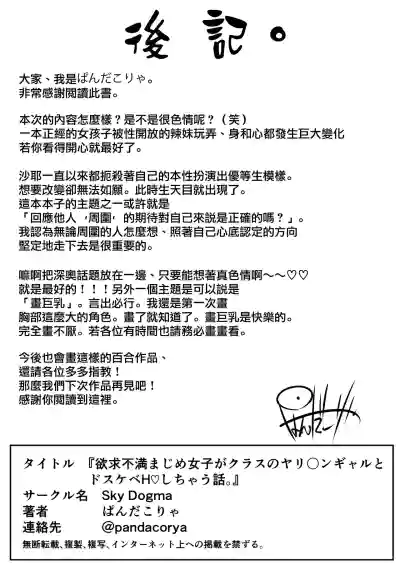 後記。
大家、我是ぱんだこりゃ。
非常感謝閱讀此書。
本次的內容怎麼樣?是不是很色情呢?(笑)
一本正經的女孩子被性開放的辣妹玩弄、身和心都發生巨大變化
若你看得開心就最好了。
沙耶一直以來都扼殺著自己的本性扮演出優等生模樣。
想要改變卻無法如願。此時生天目就出現了。
這本本子的主題之一或許就是
「回應他人‘周圍’的期待對自己來說是正確的嗎?」。
我認為無論周圍的人怎麼想、照著自己心底認定的方向
堅定地走下去是很重要的。
嘛啊把深奧話題放在一邊、只要能想著真色情啊~~♡♡
就是最好的!!!另外一個主題是可以說是
「畫巨乳」。言出必行。我還是第一次畫
胸部這麼大的角色。畫了就知道了。畫巨乳是快樂的。
完全畫不厭。若各位有時間也請務必畫畫看。
今後也會畫這樣的百合作品、
還請各位多多指教!
那麼我們下次作品再見吧!
感謝你閱讀到這裡。
タイトル 『欲求不満まじめ女子がクラスのヤリ〇ンギャルと
ドスケベH♡しちゃう話。』
サークル名 Sky Dogma
著者 ぱんだこりゃ
連絡先 @pandacorya
無断転載、複製、複写、インターネット上への掲載を禁ずる。